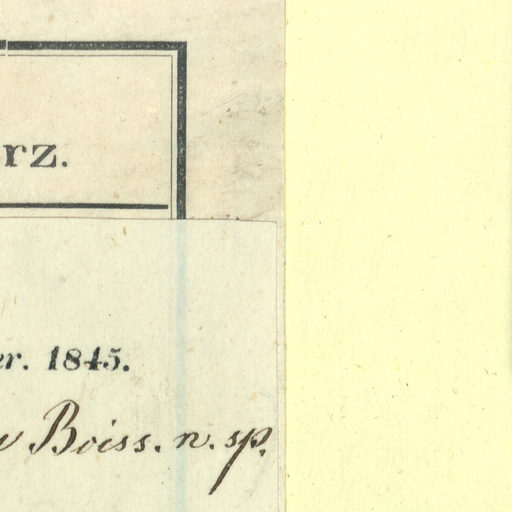 rz.
er. 1845.
Boiss. n. sp.